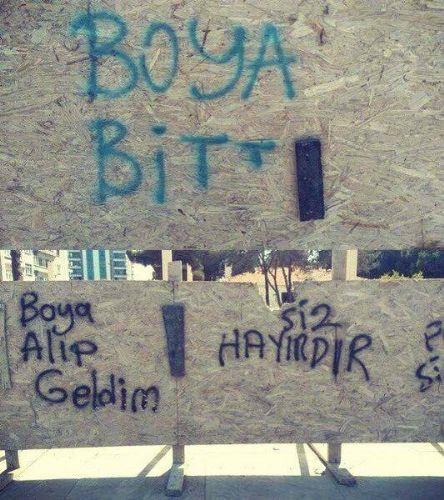 BOYA
BiTTI
Boya
Alıp
Geldim
SiZ
HAYIRDIR